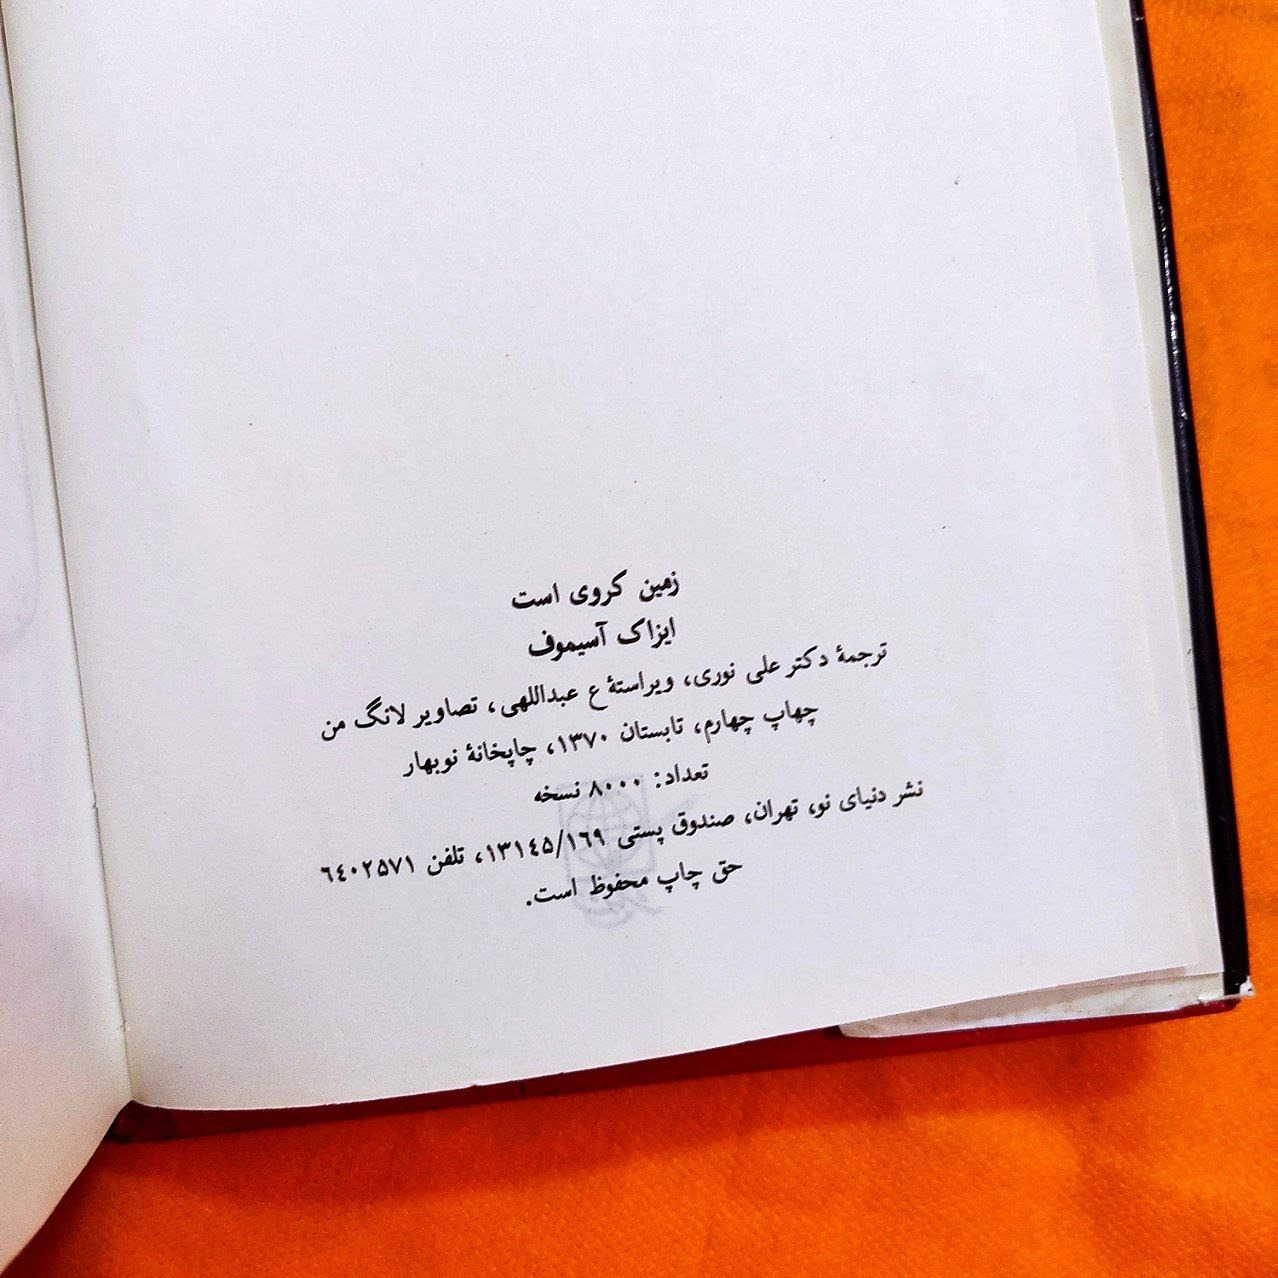 زمین کروی است
ایزاک آسیموف
ترجمهٔ دکتر علی نوری، ویراستهٔ ع عبداللهی، تصاویر لانگ من
چهاپ چهارم، تابستان ۱۳۷۰، چاپخانهٔ نوبهار
تعداد: ۸۰۰۰ نسخه
نشر دنیای نو، تهران، صندوق پستی ۱۳۱٤۵/۱٦۹، تلفن ٦٤۰۲۵۷۱
حق چاپ محفوظ است.